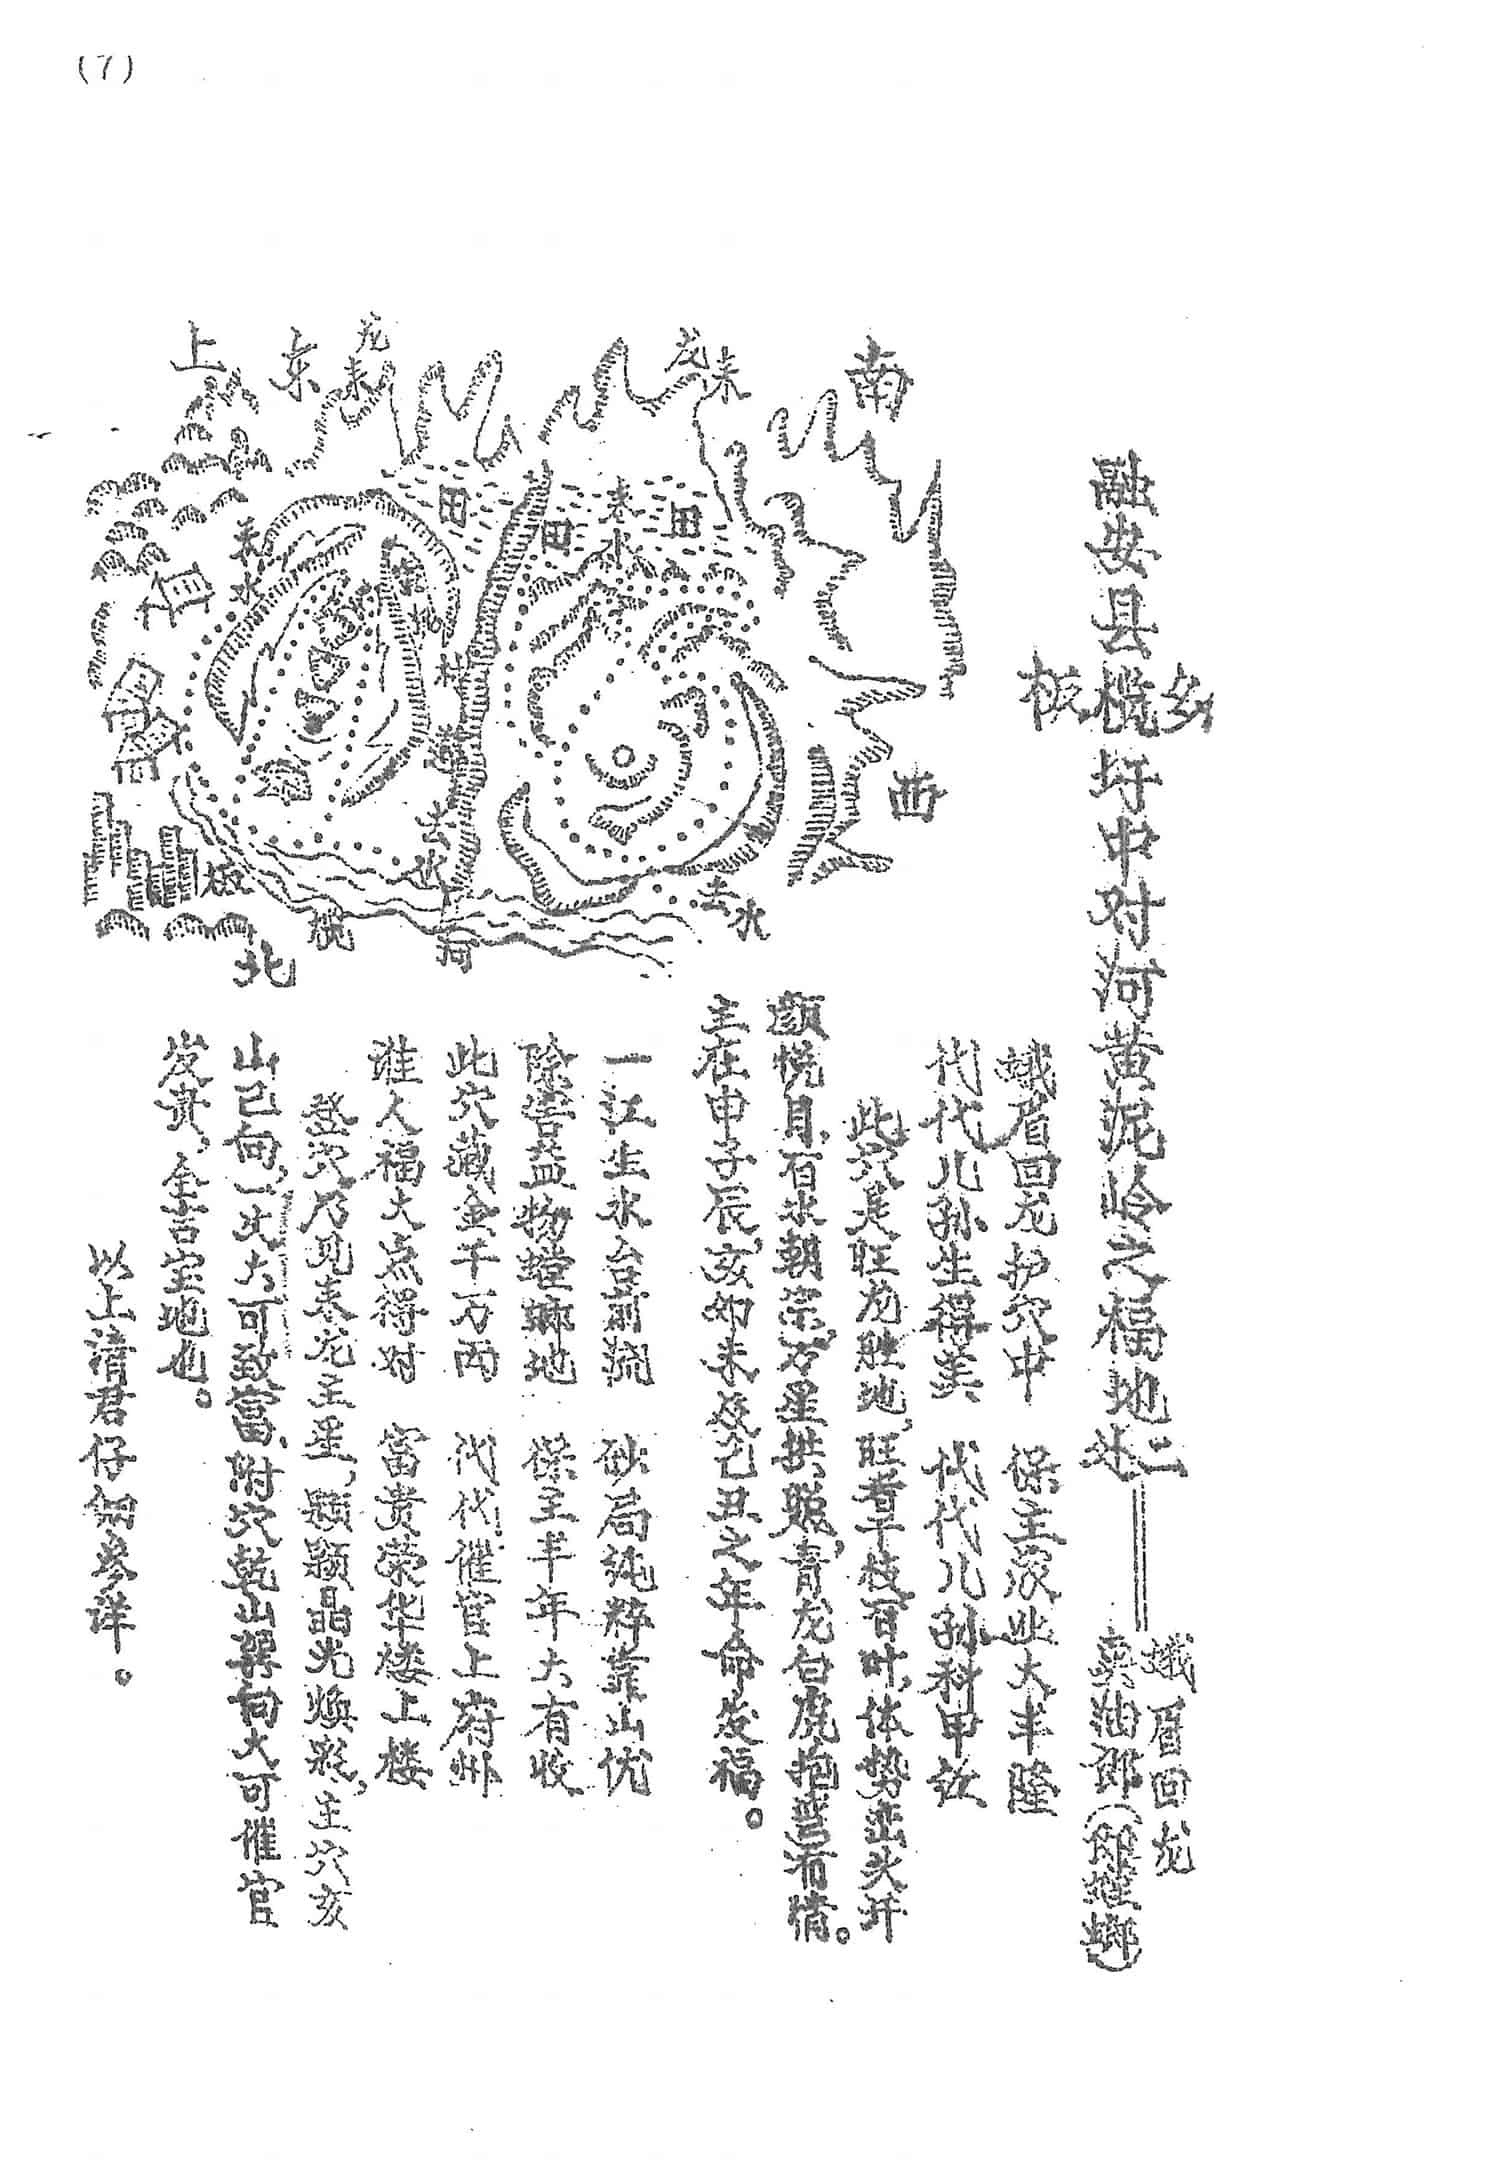 (7)
融安县
板榄乡
圩中对河黄泥岭之福地
二处
蛾眉回龙
卖油郎(即螳螂)
蛾眉回龙护穴中 保主农业大丰隆
代代儿孙生得美 代代儿孙科甲
此穴是旺龙胜地,旺者千枝百叶,体势峦头开
颜悦目,百水朝宗,万星拱照,青龙白虎抱弯有情。
主在申子辰,亥卯未及乙丑之年命发福。
一江生水台前绕 砂局纯粹靠山优
除害益物螳螂地 保主年年大有收
此穴藏金千万两 代代催官上府州
谁人福大点得对 富贵荣华楼上楼
登穴乃见来龙主星,颗颗晶光焕彩,主穴亥
山己向,可致富,附穴乾山巽向大可催官
发贵,全吉宝地也。
以上请君仔细参详。
上
东
龙来
龙来
南
来水
田
田
来水
田
西
村
道
去水
去水
板
榄
河
北